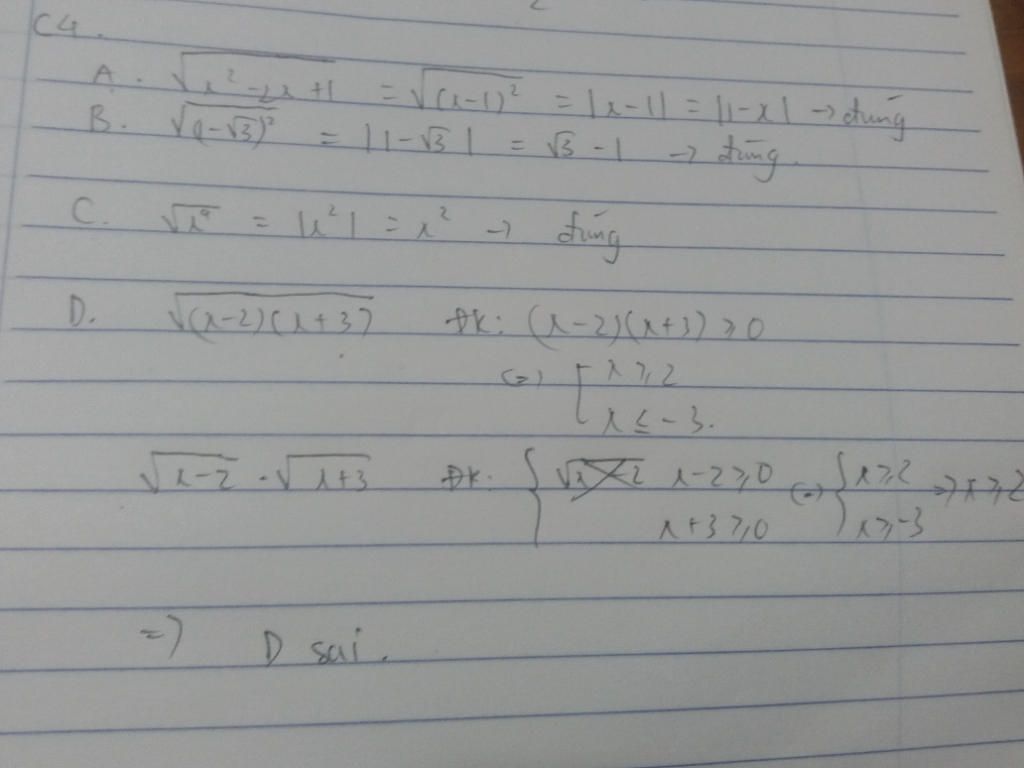 C4.
A. √(x² - 2x + 1) = √((x-1)²) = |x-1| = |1-x| → đúng
B. √((1-√3)²) = |1-√3| = √3 - 1 → đúng.
C. √(x⁴) = |x²| = x² → đúng
D. √((x-2)(x+3)) ĐK: (x-2)(x+3) ≥ 0
(=) [ x ≥ 2
x ≤ -3.
√(x-2) . √(x+3) ĐK: { x-2 ≥ 0 (=) { x ≥ 2 => x ≥ 2
x+3 ≥ 0 x ≥ -3
=) D sai.